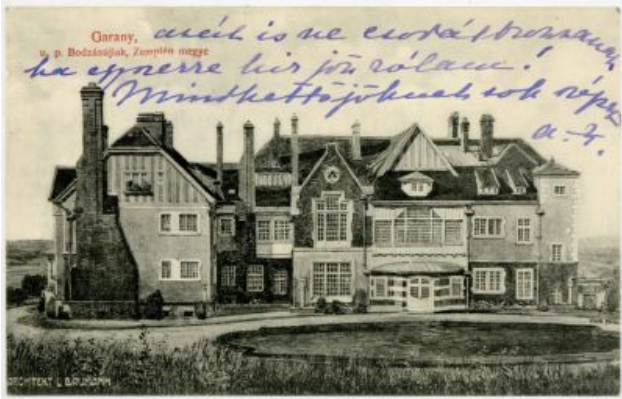 Garany,
u. p. Bodzásújlak, Zemplén megye
azért is ne csodálkozzanak
ha egyszerre hir jön rólam!
Mindkettőjöknek sok szépet
ARCHITEKT L BAUMANN